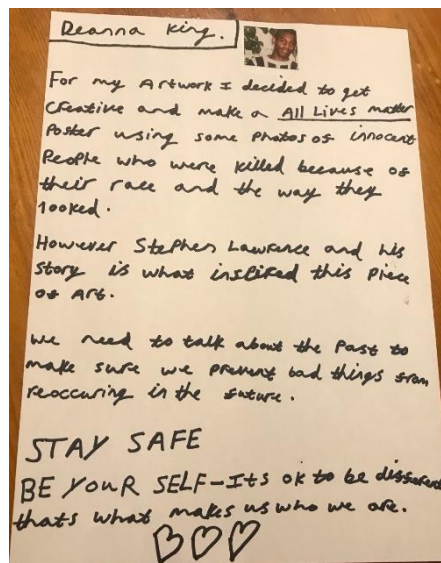 Deanna King.
For my Artwork I decided to get
creative and make a All Lives matter
Poster using some Photos of innocent
People who were killed because of
their race and the way they
looked.
However Stephen Lawrence and his
story is what inspired this Piece
of Art.
we need to talk about the Past to
make sure we prevent bad things from
reoccuring in the future.
STAY SAFE
BE YOUR SELF-Its ok to be different
thats what makes us who we are.